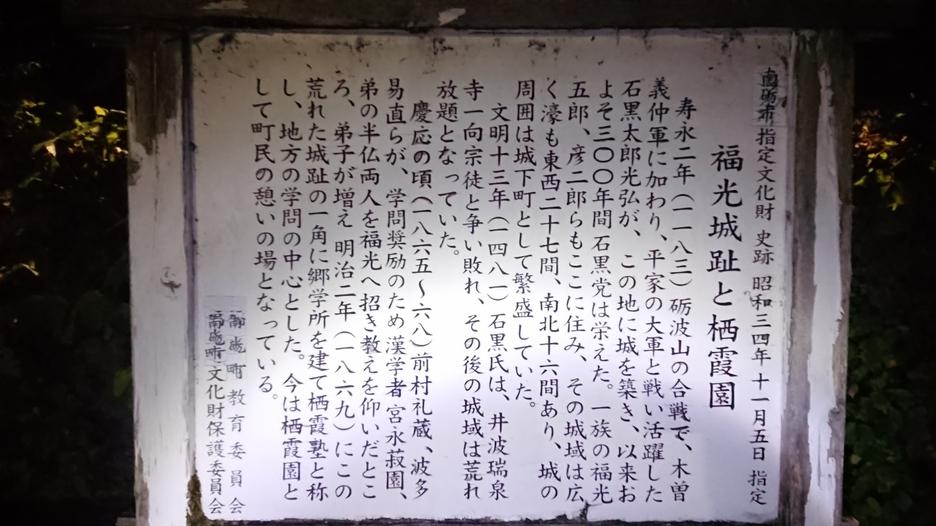 南砺市指定文化財 史跡 昭和三四年十一月五日 指定
福光城趾と栖霞園
寿永二年（一一八三）砺波山の合戦で、木曽
義仲軍に加わり、平家の大軍と戦い活躍した
石黒太郎光弘が、この地に城を築き、以来お
よそ三〇〇年間石黒党は栄えた。一族の福光
五郎、彦二郎らもここに住み、その城域は広
く濠も東西二十七間、南北十六間あり、城の
周囲は城下町として繁盛していた。
文明十三年（一四八一）石黒氏は、井波瑞泉
寺一向宗徒と争い敗れ、その後の城域は荒れ
放題となっていた。
慶応の頃（一八六五～六八）前村礼蔵、波多
易直らが、学問奨励のため漢学者宮永菽園、
弟の半仏両人を福光へ招き教えを仰いだとこ
ろ、弟子が増え明治二年（一八六九）にこの
荒れた城趾の一角に郷学所を建て栖霞塾と称
し、地方の学問の中心とした。今は栖霞園と
して町民の憩いの場となっている。
町教育委員会
文化財保護委員会